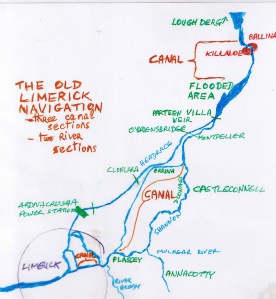 LOUGH DERG
BALLINA
KILLALOE
CANAL
FLOODED
AREA
THE OLD
LIMERICK
NAVIGATION
- three canal
sections
- two river
sections
PARTEEN VILLA
WEIR
O'BRIENSBRIDGE
MONTPELIER
HEADRACE
CLONLARA
ERRINA
CANAL
CASTLECONNELL
SHANNON
ARDNACRUSHA
POWER STATION
MULKEAR RIVER
LIMERICK
CANAL
PLASSEY
ANNACOTTY
RIVER